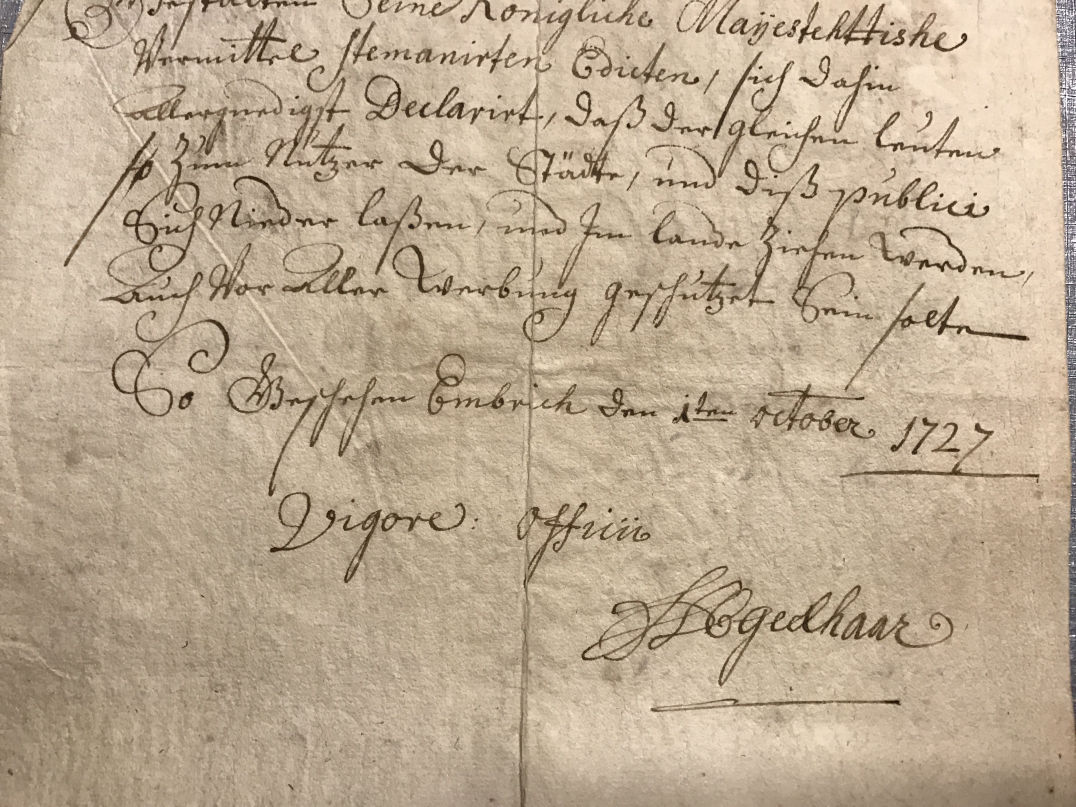 Gestalten Seine Königliche Mayestehttishe
Vermittel stemanirten Edicten, sich dahin
Allergnedigst Declarirt, daß der gleichen leuten
so Zum Nutzen der Städte, und diß publici
Sich Nieder laßen, und Im lande ziehen werden,
Auch Vor Aller Werbung geschützet Sein solte
So Geschehen Embrich den 1ten october 1727
Vigore: officii